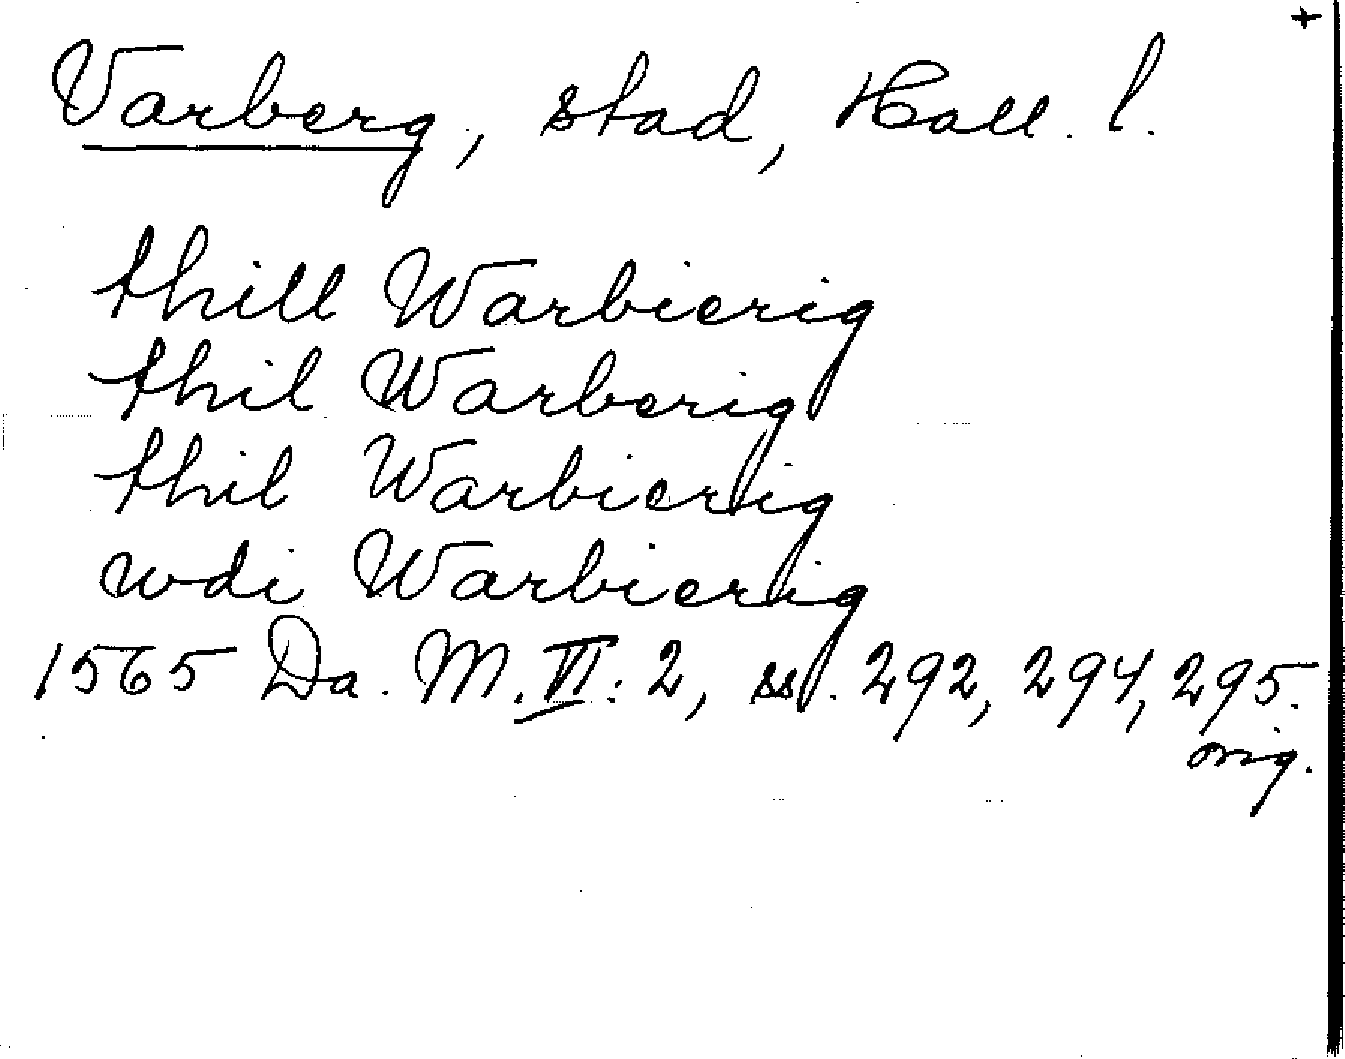 +
Varberg, stad, Hall. l.
thill Warbierig
thil Warberig
thil Warbierig
wdi Warbierig
1565 Da. M. VI: 2, ss. 292, 294, 295.
orig.